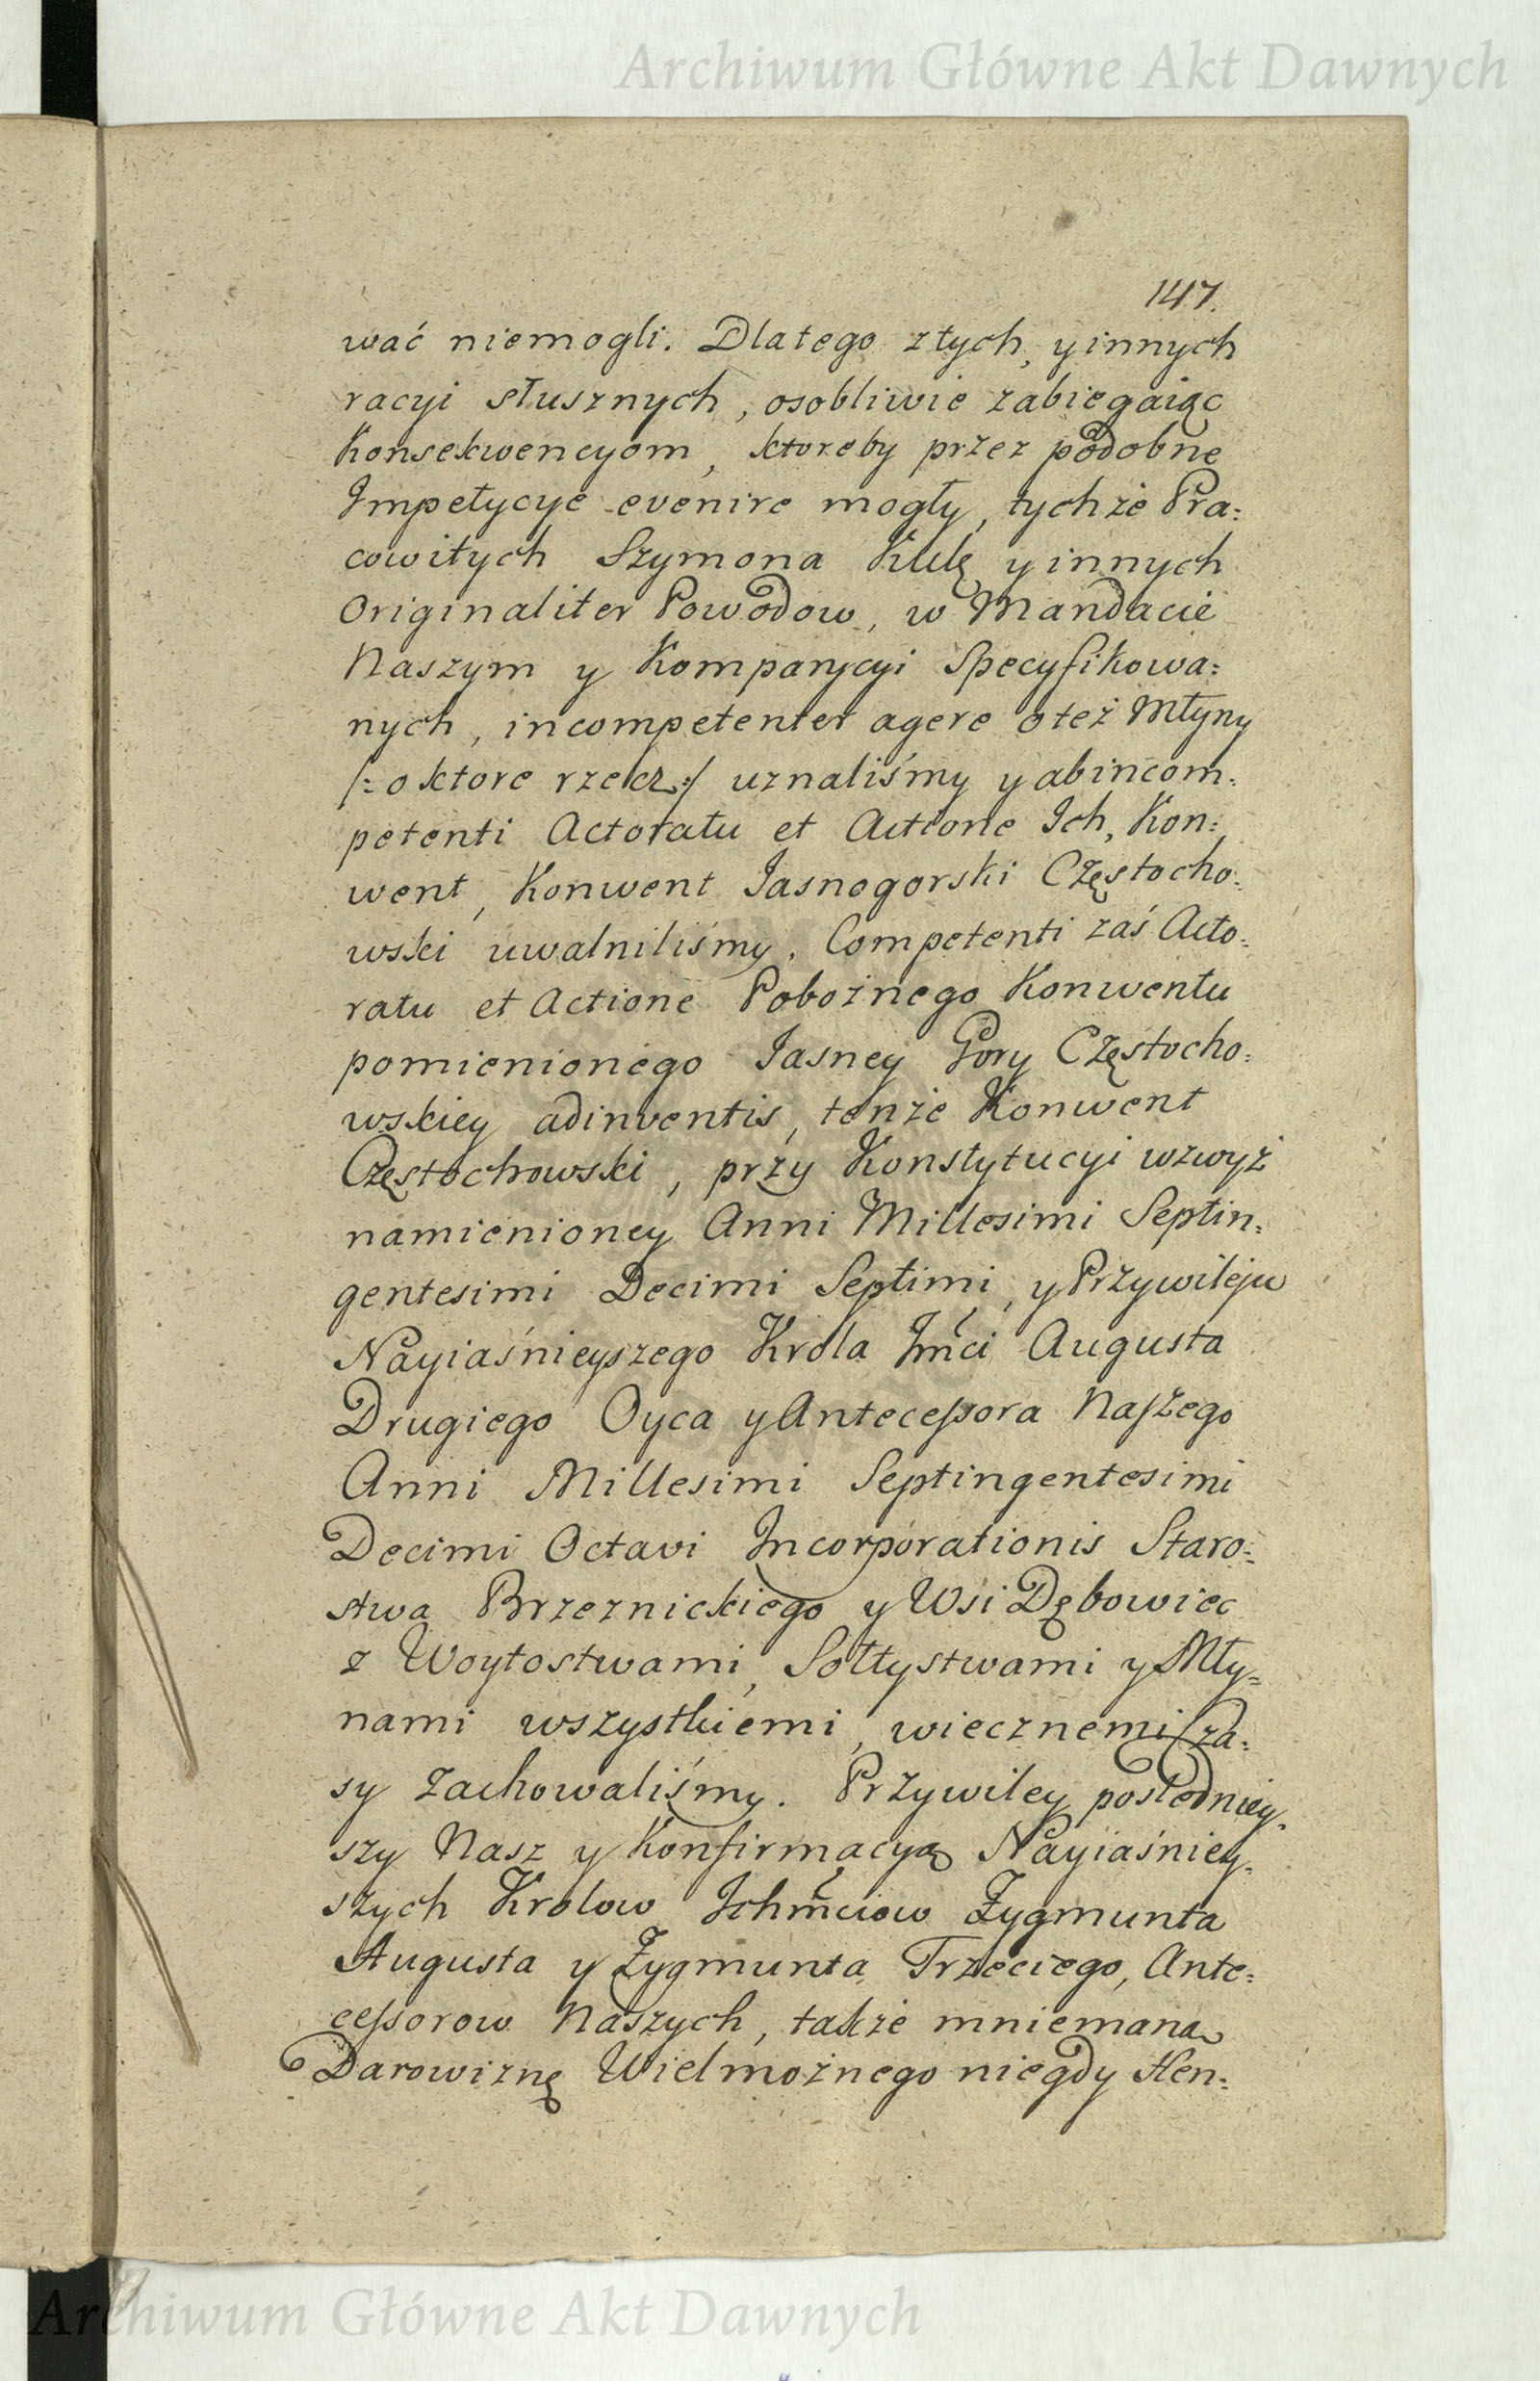 Archiwum Główne Akt Dawnych
147.
wać niemogli. Dlatego z tych, y innych
racyi słusznych, osobliwie zabiegaiąc
Konsekwencyom, ktoreby przez podobne
Impetycye evenire mogły, tychże Pra:
cowitych Szymona Kulę y innych
Originaliter Powodow, w Mandacie
Naszym y Komparycyi Specyfikowa:
nych, incompetenter agere o też Młyny
/: o ktore rzecz :/ uznaliśmy y ab incom:
petenti Actoratu et Actione Ich, Kon:
went, Konwent Jasnogorski Częstocho:
wski uwalniliśmy. Competenti zaś Acto:
ratu et Actione Pobożnego Konwentu
pomienionego Jasney Gory Częstocho:
wskiey adinventis, tenże Konwent
Częstochowski, przy Konstytucyi wzwyż
namienioney Anni Millesimi Septin:
gentesimi Decimi Septimi, y Przywileju
Nayiaśnieyszego Krola Jmci Augusta
Drugiego Oyca y Antecessora Naszego
Anni Millesimi Septingentesimi
Decimi Octavi Incorporationis Staro:
stwa Brzeznickiego y Wsi Dębowiec
z Woytostwami, Sołtystwami y Mły:
nami wszystkiemi, wiecznemi cza:
sy zachowaliśmy. Przywiley posledniey:
szy Nasz y Konfirmacyą Nayiaśniey:
szych Krolow Ichmciow Zygmunta
Augusta y Zygmunta Trzeciego, Ante:
cessorow Naszych, także mniemaną
Darowiznę Wielmożnego niegdy Hen:
Archiwum Główne Akt Dawnych